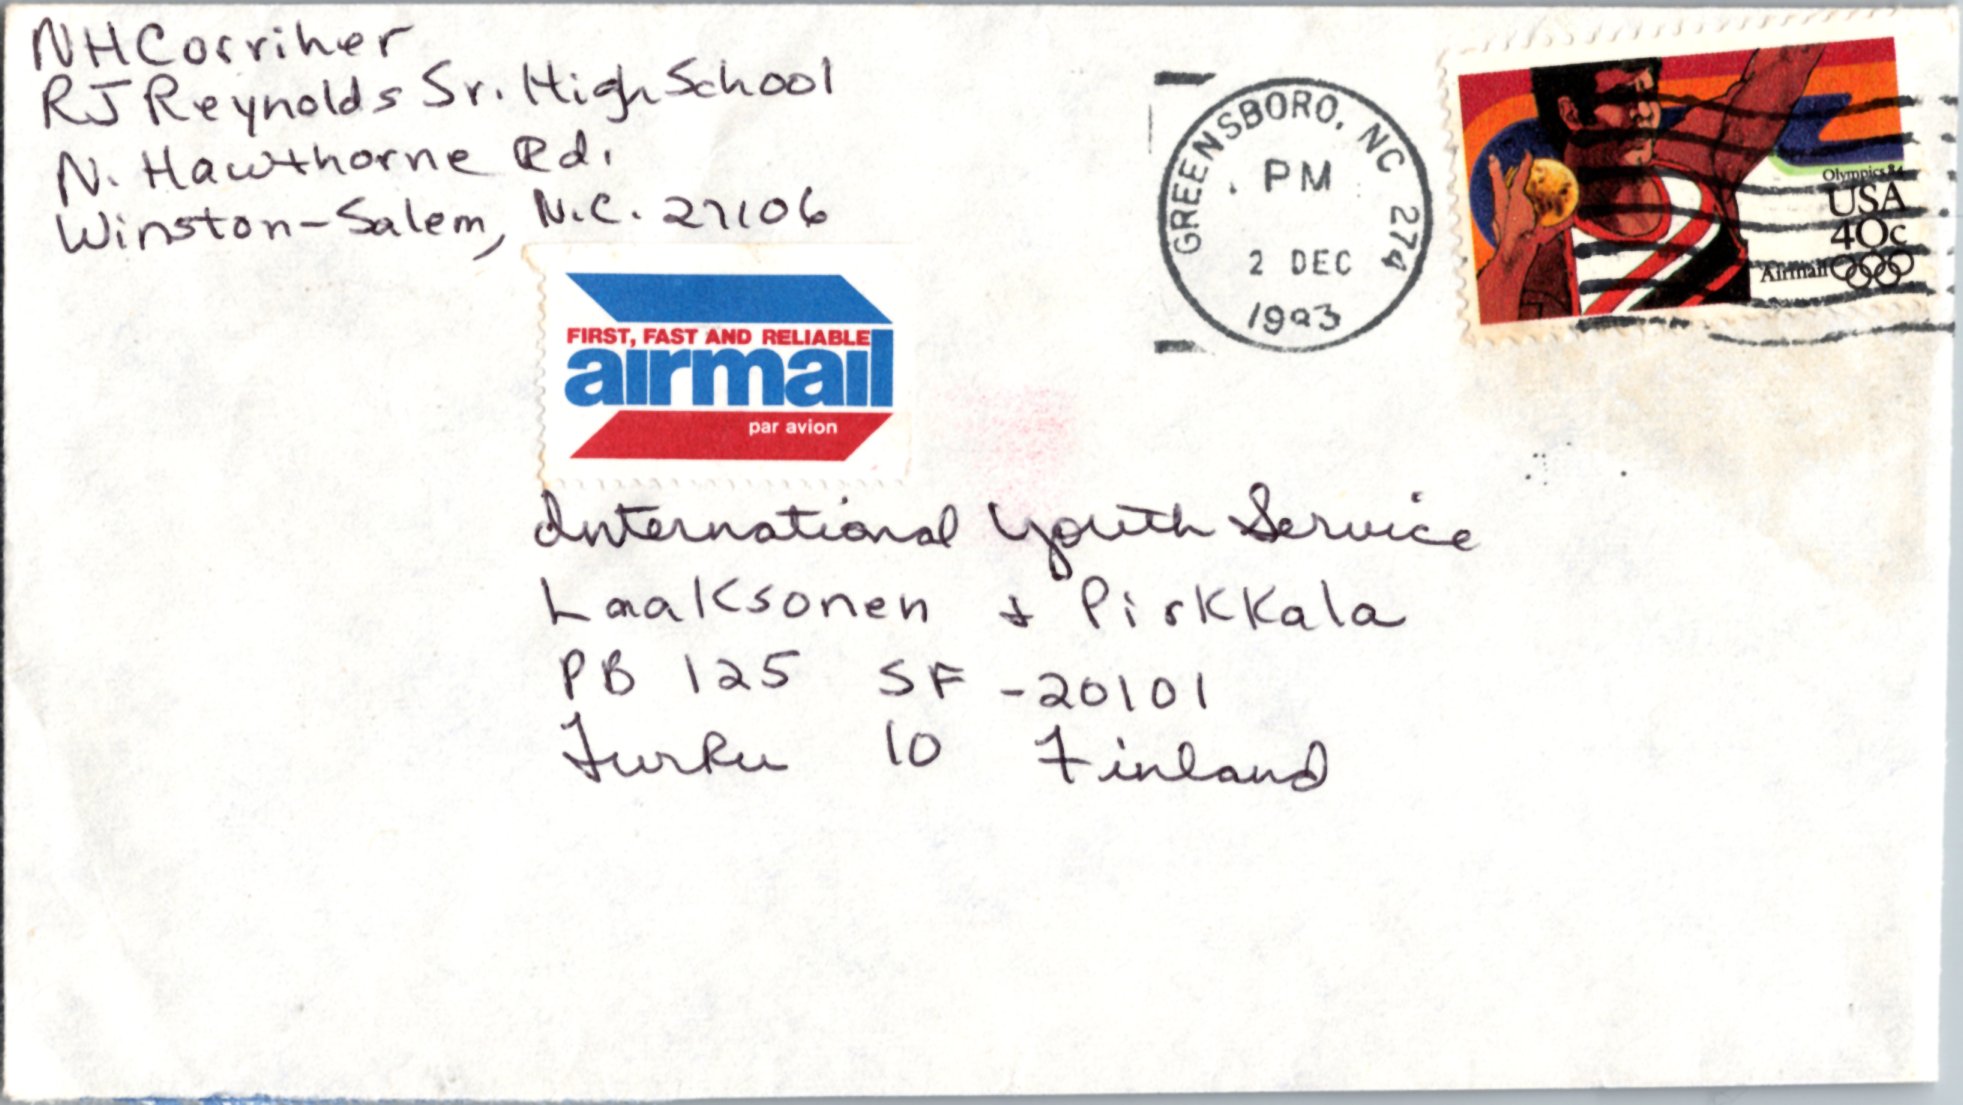 NHCorriher
RJ Reynolds Sr. High School
N. Hawthorne Rd.
Winston-Salem, N.C. 27106
GREENSBORO, NC 274
PM
2 DEC
1993
Olympics 84
USA
40c
Airmail
FIRST, FAST AND RELIABLE
airmail
par avion
International Youth Service
Laaksonen & Pirkkala
PB 125 SF -20101
Turku 10 Finland